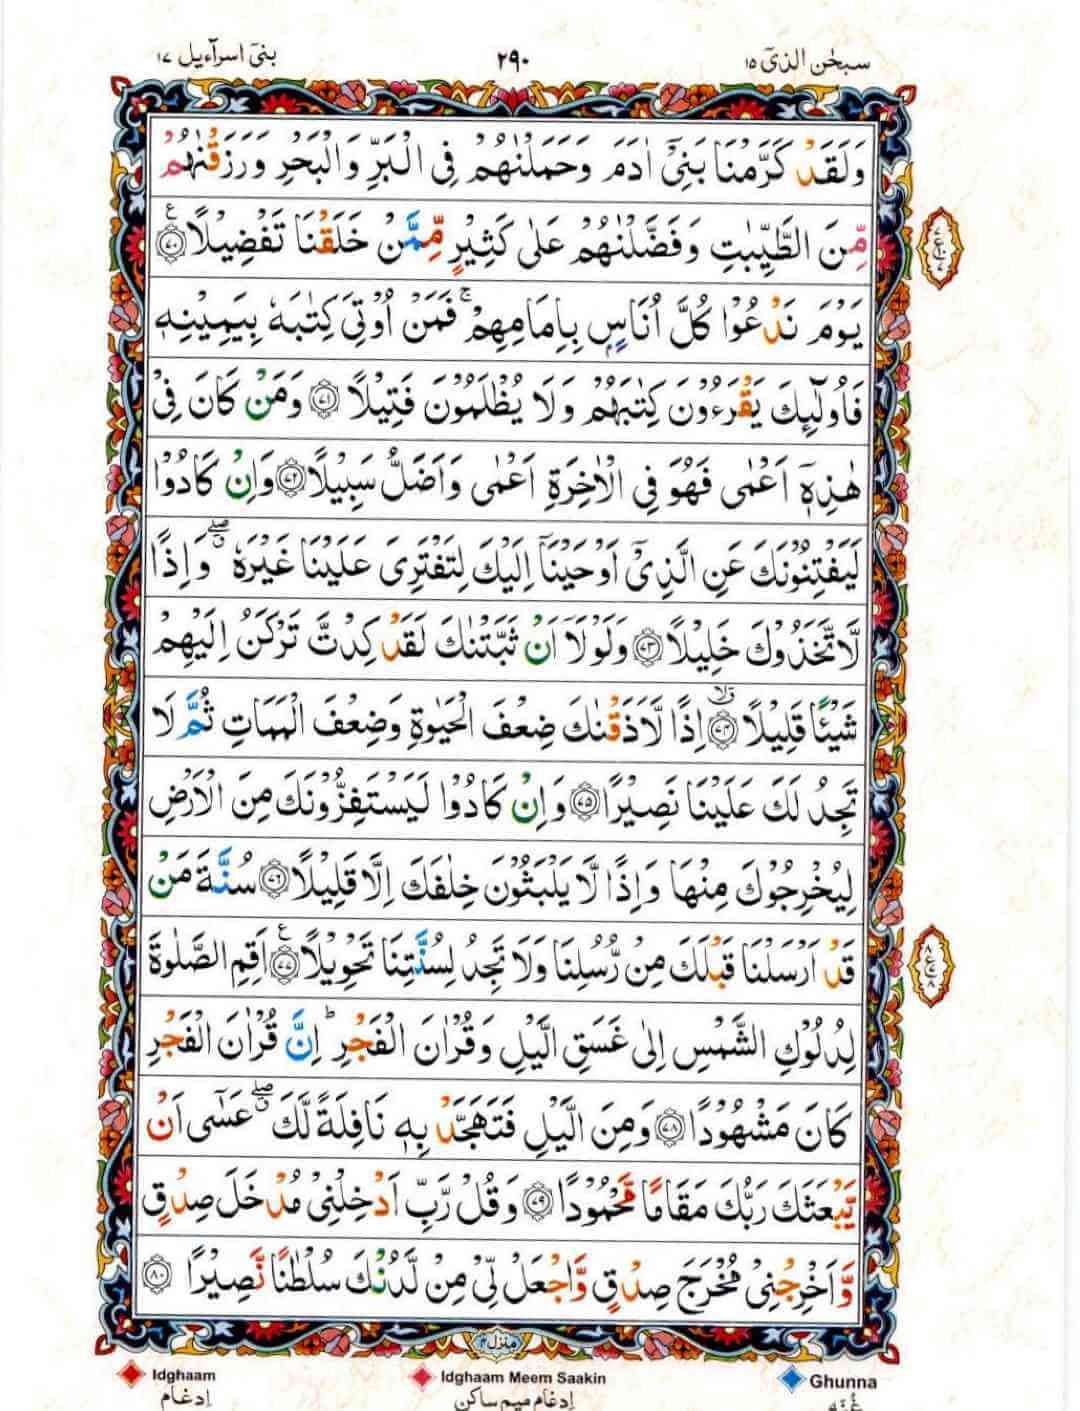 سبحٰن الذیٓ ١٥
٢٩٠
بنیٓ اسرآءیل ١٧
وَلَقَدْ كَرَّمْنَا بَنِیْۤ اٰدَمَ وَحَمَلْنٰهُمْ فِی الْبَرِّ وَالْبَحْرِ وَرَزَقْنٰهُمْ
مِّنَ الطَّیِّبٰتِ وَفَضَّلْنٰهُمْ عَلٰی كَثِیْرٍ مِّمَّنْ خَلَقْنَا تَفْضِیْلًا ۝٧٠ ع
یَوْمَ نَدْعُوْا كُلَّ اُنَاسٍۭ بِاِمَامِهِمْ ۚ فَمَنْ اُوْتِیَ كِتٰبَهٗ بِیَمِیْنِهٖ
فَاُولٰٓئِكَ یَقْرَءُوْنَ كِتٰبَهُمْ وَلَا یُظْلَمُوْنَ فَتِیْلًا ۝٧١ وَمَنْ كَانَ فِیْ
هٰذِهٖۤ اَعْمٰی فَهُوَ فِی الْاٰخِرَةِ اَعْمٰی وَاَضَلُّ سَبِیْلًا ۝٧٢ وَاِنْ كَادُوْا
لَیَفْتِنُوْنَكَ عَنِ الَّذِیْۤ اَوْحَیْنَاۤ اِلَیْكَ لِتَفْتَرِیَ عَلَیْنَا غَیْرَهٗ ۖق وَاِذًا
لَّاتَّخَذُوْكَ خَلِیْلًا ۝٧٣ وَلَوْلَاۤ اَنْ ثَبَّتْنٰكَ لَقَدْ كِدْتَّ تَرْكَنُ اِلَیْهِمْ
شَیْـًٔا قَلِیْلًا ۝٧٤ۗۙ اِذًا لَّاَذَقْنٰكَ ضِعْفَ الْحَیٰوةِ وَضِعْفَ الْمَمَاتِ ثُمَّ لَا
تَجِدُ لَكَ عَلَیْنَا نَصِیْرًا ۝٧٥ وَاِنْ كَادُوْا لَیَسْتَفِزُّوْنَكَ مِنَ الْاَرْضِ
لِیُخْرِجُوْكَ مِنْهَا وَاِذًا لَّا یَلْبَثُوْنَ خِلٰفَكَ اِلَّا قَلِیْلًا ۝٧٦ سُنَّةَ مَنْ
قَدْ اَرْسَلْنَا قَبْلَكَ مِنْ رُّسُلِنَا وَلَا تَجِدُ لِسُنَّتِنَا تَحْوِیْلًا ۝٧٧ ع اَقِمِ الصَّلٰوةَ
لِدُلُوْكِ الشَّمْسِ اِلٰی غَسَقِ الَّیْلِ وَقُرْاٰنَ الْفَجْرِ ؕ اِنَّ قُرْاٰنَ الْفَجْرِ
كَانَ مَشْهُوْدًا ۝٧٨ وَمِنَ الَّیْلِ فَتَهَجَّدْ بِهٖ نَافِلَةً لَّكَ ۖق عَسٰۤی اَنْ
یَّبْعَثَكَ رَبُّكَ مَقَامًا مَّحْمُوْدًا ۝٧٩ وَقُلْ رَّبِّ اَدْخِلْنِیْ مُدْخَلَ صِدْقٍ
وَّاَخْرِجْنِیْ مُخْرَجَ صِدْقٍ وَّاجْعَلْ لِّیْ مِنْ لَّدُنْكَ سُلْطٰنًا نَّصِیْرًا ۝٨٠
منزل ٤
Ghunna
غُنّه
Idghaam Meem Saakin
اِدغام میم ساکن
Idghaam
اِدغام